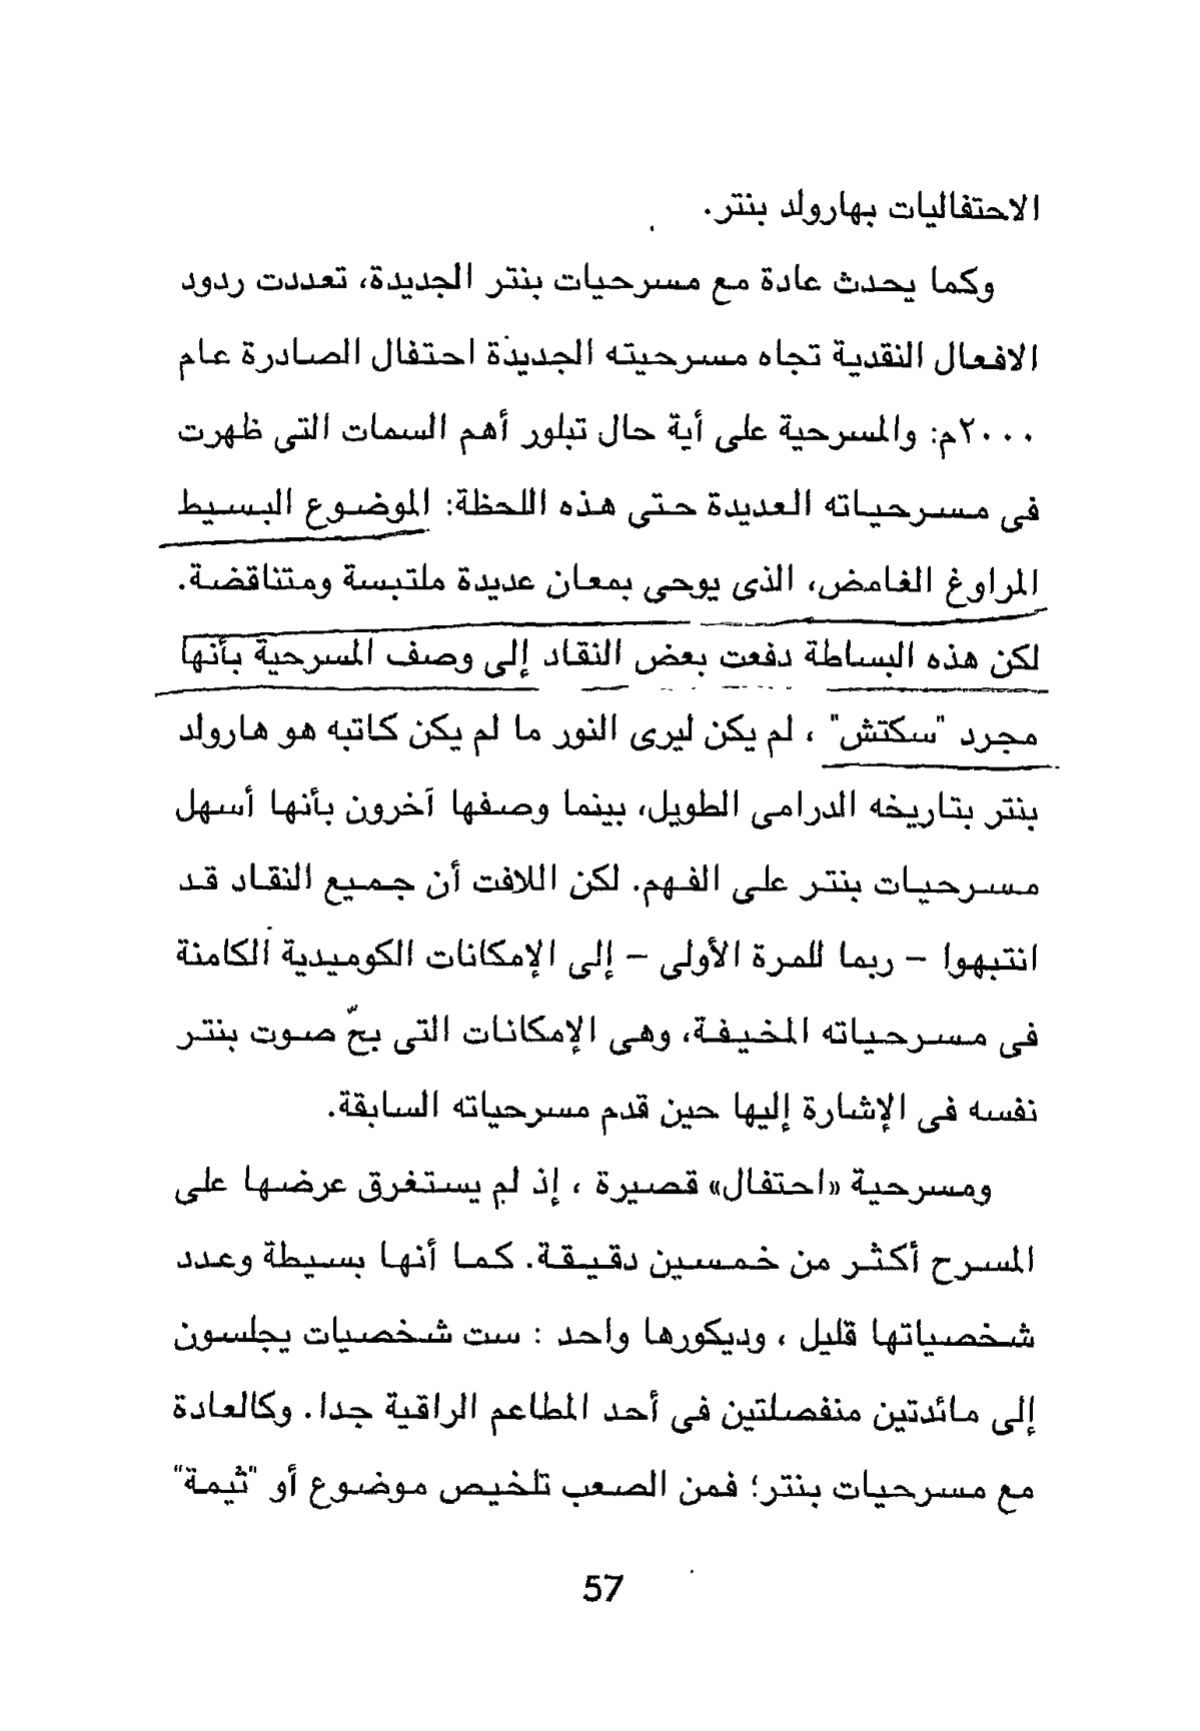 الاحتفاليات بهارولد بنتر.
وكما يحدث عادة مع مسرحيات بنتر الجديدة، تعددت ردود
الافعال النقدية تجاه مسرحيته الجديدة احتفال الصادرة عام
٢٠٠٠م: والمسرحية على أية حال تبلور أهم السمات التى ظهرت
فى مسرحياته العديدة حتى هذه اللحظة: الموضوع البسيط
المراوغ الغامض، الذى يوحى بمعان عديدة ملتبسة ومتناقضة.
لكن هذه البساطة دفعت بعض النقاد إلى وصف المسرحية بأنها
مجرد "سكتش" ، لم يكن ليرى النور ما لم يكن كاتبه هو هارولد
بنتر بتاريخه الدرامى الطويل، بينما وصفها آخرون بأنها أسهل
مسرحيات بنتر على الفهم. لكن اللافت أن جميع النقاد قد
انتبهوا – ربما للمرة الأولى – إلى الإمكانات الكوميدية الكامنة
فى مسرحياته المخيفة، وهى الإمكانات التى بحّ صوت بنتر
نفسه فى الإشارة إليها حين قدم مسرحياته السابقة.
ومسرحية «احتفال» قصيرة ، إذ لم يستغرق عرضها على
المسرح أكثر من خمسين دقيقة. كما أنها بسيطة وعدد
شخصياتها قليل ، وديكورها واحد : ست شخصيات يجلسون
إلى مائدتين منفصلتين فى أحد المطاعم الراقية جدا. وكالعادة
مع مسرحيات بنتر؛ فمن الصعب تلخيص موضوع أو "ثيمة"
57